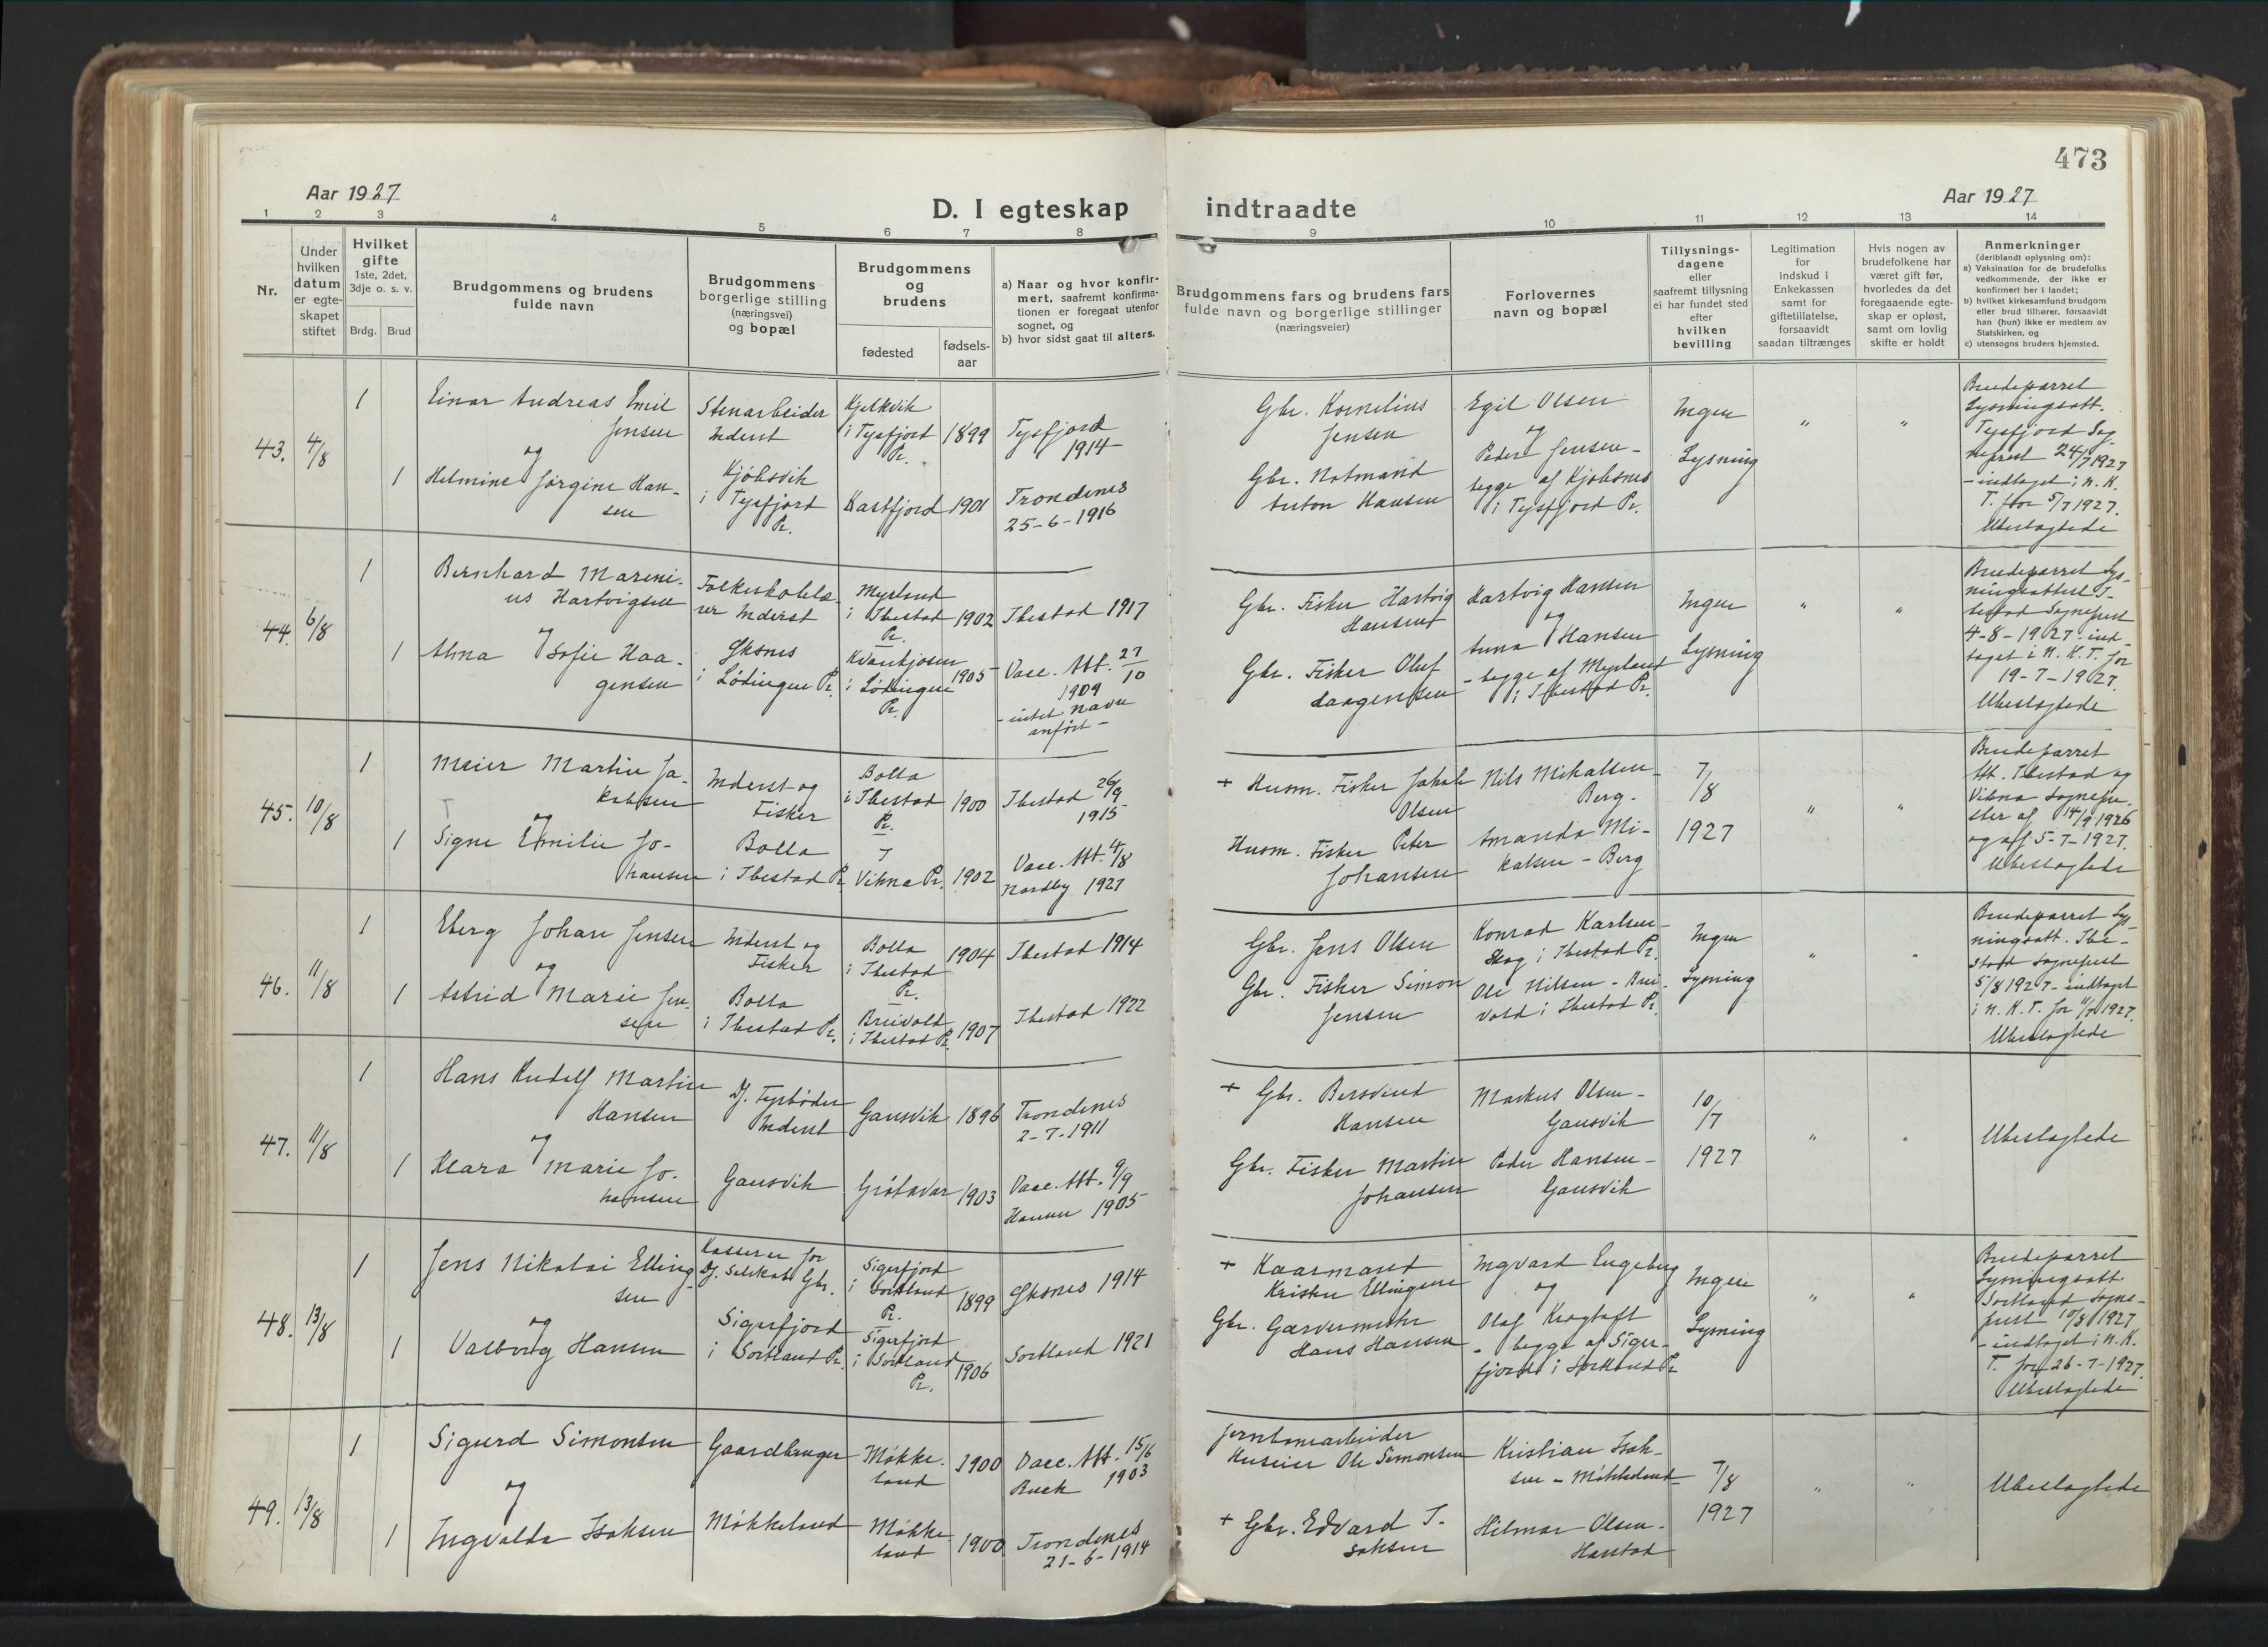 473
Aar 1927
D. I egteskap indtraadte
Aar 1927
1 2 3 4 5 6 7 8 9 10 11 12 13 14
Nr.
Under hvilken datum er egteskapet stiftet
Hvilket gifte 1ste, 2det, 3dje o. s. v.
Brdg. Brud
Brudgommens og brudens fulde navn
Brudgommens borgerlige stilling (næringsvei) og bopæl
Brudgommens og brudens
fødested
fødselsaar
a) Naar og hvor konfirmert, saafremt konfirmationen er foregaat utenfor sognet, og
b) hvor sidst gaat til alters.
Brudgommens fars og brudens fars fulde navn og borgerlige stillinger (næringsveier)
Forlovernes navn og bopæl
Tillysningsdagene eller saafremt tillysning ei har fundet sted efter hvilken bevilling
Legitimation for indskud i Enkekassen samt for giftetillatelse, forsaavidt saadan tiltrænges
Hvis nogen av brudefolkene har været gift før, hvorledes da det foregaaende egteskap er opløst, samt om lovlig skifte er holdt
Anmerkninger (deriblandt oplysning om):
a) Vaksination for de brudefolks vedkommende, der ikke er konfirmert her i landet;
b) hvilket kirkesamfund brudgom eller brud tilhører, forsaavidt han (hun) ikke er medlem av Statskirken, og
c) utensogns bruders hjemsted.
43. 4/8
1
Einar Andreas Emil Jensen
og
1
Helmine Jørgine Hansen
Stenarbeider Inderst
Kjøbsvik i Tysfjord Pr.
Kjelkvik i Tysfjord Pr. 1899
Kastfjord 1901
Tysfjord 1914
Trondenes 25-6-1916
Gbr. Kornelius Jensen
Gbr. Notmand Anton Hansen
Egil Olsen
og
Peder Jensen -
begge af Kjøbsnes i Tysfjord Pr.
Ingen Lysning
" "
Brudeparret Lysningsatt. Tysfjord Sogneprest 24/7 1927 - indtaget i N. K. T. for 5/7 1927. Ubeslagtede
44. 6/8
1
Bernhard Marenius Hartvigsen
og
1
Anna Sofie Haagensen
Folkeskolelærer Inderst
Oksnes i Lødingen Pr.
Myrland i Ibestad Pr. 1902
Kvankjosen i Lødingen Pr. 1905
Ibestad 1917
Vacc. Att. 27/10 1909 - intet navn anført -
Gbr. Fisker Hartvig Hansen
Gbr. Fisker Oluf Haagensen
Hartvig Hansen
og
Anna Hansen
- begge af Myrland i Ibestad Pr.
Ingen Lysning
" "
Brudeparret Lysningsattest Ibestad Sogneprest 4-8-1927 - indtaget i N. K. T. for 19-7-1927. Ubeslagtede
45. 10/8
1
Meier Martin Jakobsen
og
1
Signe Emilie Johansen
Inderst og Fisker
Bolla i Ibestad Pr.
Bolla i Ibestad Pr. 1900
Vikna Pr. 1902
Ibestad 26/9 1915
Vacc. Att. 4/8 Nordby 1927
+ Husm. Fisker Jakob Olsen
Husm. Fisker Peter Johansen
Nils Mikalsen - Berg.
Amanda Mikalsen - Berg
7/8 1927
" "
Brudeparret Att. Ibestad og Vikna Sogneprester af 14/9 1926 og af 5-7-1927. Ubeslagtede
46. 11/8
1
Eberg Johan Jensen
og
1
Astrid Marie Jensen
Inderst og Fisker
Bolla i Ibestad Pr.
Bolla i Ibestad Pr. 1904
Breivold i Ibestad Pr. 1907
Ibestad 1914
Ibestad 1922
Gbr. Jens Olsen
Gbr. Fisker Simon Jensen
Konrad Karlsen - Skog i Ibestad Pr.
Ole Nilsen - Breivold i Ibestad Pr.
Ingen Lysning
" "
Brudeparret Lysningsatt. Ibestad Sogneprest 5/8 1927 - indtaget i N. K. T. for 11/7 1927. Ubeslagtede
47. 11/8
1
Hans Rudolf Martin Hansen
og
1
Klara Marie Johansen
Dj. Fyrbøder Inderst
Gausvik
Gausvik 1896
Grøtavær 1903
Trondenes 2-7-1911
Vacc. Att. 9/9 Hansen 1905
+ Gbr. Bersvend Hansen
Gbr. Fisker Martin Johansen
Markus Olsen - Gausvik
Peder Hansen - Gausvik
10/7 1927
" "
Ubeslagtede
48. 13/8
1
Jens Nikolai Ellingsen
og
1
Valborg Hansen
Kasserer for Dj. Selskab Gbr.
Sigerfjord i Sortland Pr.
Sigerfjord i Sortland Pr. 1899
Sigerfjord i Sortland Pr. 1906
Oksnes 1914
Sortland 1921
+ Kaarmand Kristen Ellingsen
Gbr. Garvermester Hans Hansen
Ingvard Engeberg
og
Olaf Kragtoft
- begge af Sigerfjord i Sortland Pr.
Ingen Lysning
" "
Brudeparret Lysningsatt. Sortland Sogneprest 10/8 1927 - indtaget i N. K. T. for 26-7-1927. Ubeslagtede
49. 13/8
1
Sigurd Simonsen
og
1
Ingvalda Isaksen
Gaardbruger
Møkkeland
Møkkeland 1900
Møkkeland 1900
Vacc. Att. 15/6 Buck 1903
Trondenes 21-6-1914
Jernbanearbeider Huseier Ole Simonsen
+ Gbr. Edvard Isaksen
Kristian Isaksen - Møkkeland
Hilmar Olsen - Harstad
7/8 1927
" "
Ubeslagtede